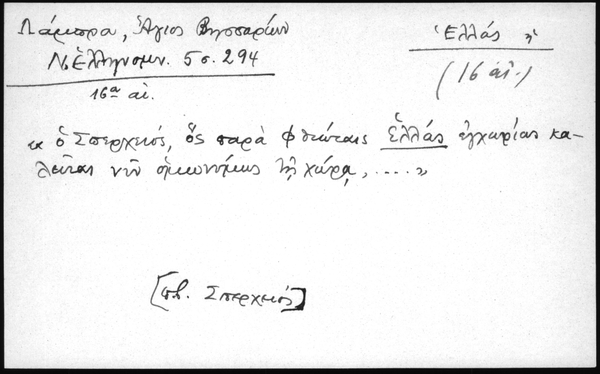 Λάμπρα, Ἅγιος Βησσαρίων
Ν. Ἑλληνομν. 5 σ. 294
16ᵃ αἰ.
Ἑλλάς, ἡ
(16 αἰ.)
« ὁ Σπερχειός, ὃς παρὰ Φθιώταις Ἑλλάς ἐγχωρίως κα-
λεῖται νῦν ὁμωνύμως τῇ χώρᾳ, .... »
[πβ. Σπερχειός]